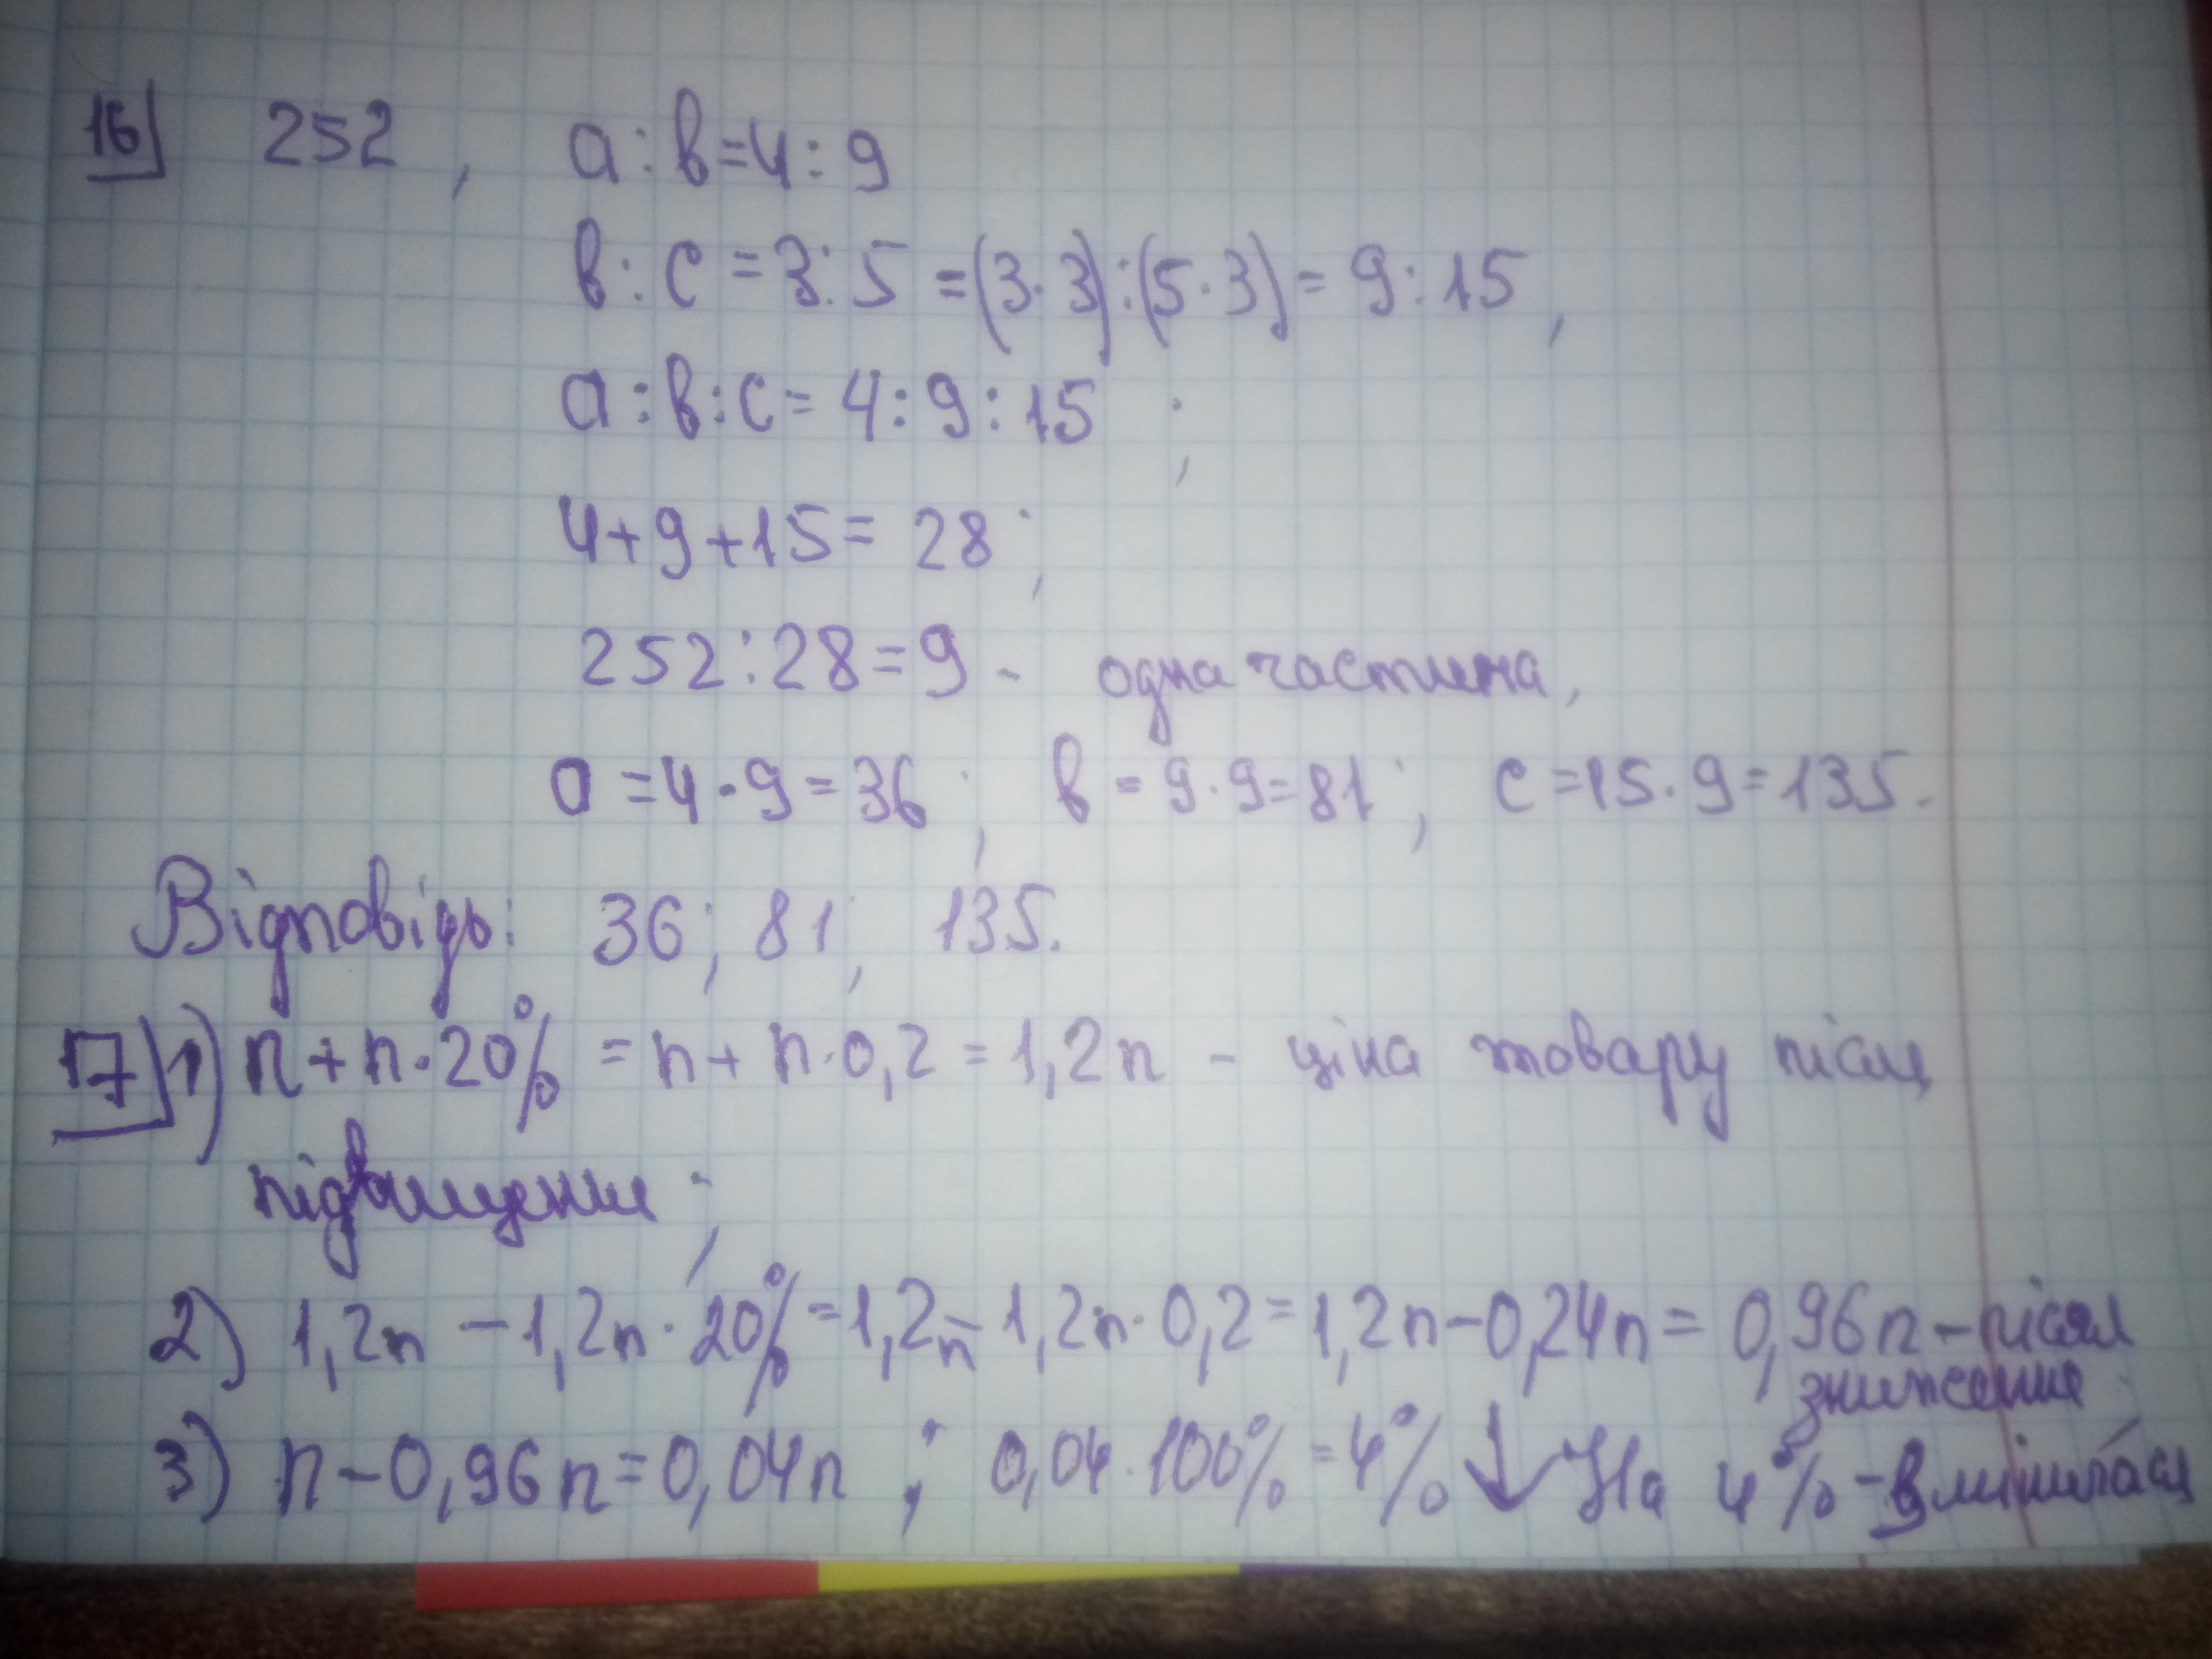 16 252, a : в = 4 : 9
в : с = 3 : 5 = (3 · 3) : (5 · 3) = 9 : 15,
a : в : с = 4 : 9 : 15 ;
4 + 9 + 15 = 28 ;
252 : 28 = 9 - одна частина,
a = 4 · 9 = 36 ; в = 9 · 9 = 81 ; с = 15 · 9 = 135.
Відповідь: 36 ; 81 ; 135.
17 1) n + n · 20% = n + n · 0,2 = 1,2n - ціна товару після
підвищення ;
2) 1,2n - 1,2n · 20% = 1,2n - 1,2n · 0,2 = 1,2n - 0,24n = 0,96n - після
зниження ;
3) n - 0,96n = 0,04n ; 0,04 · 100% = 4% ↓ На 4% -